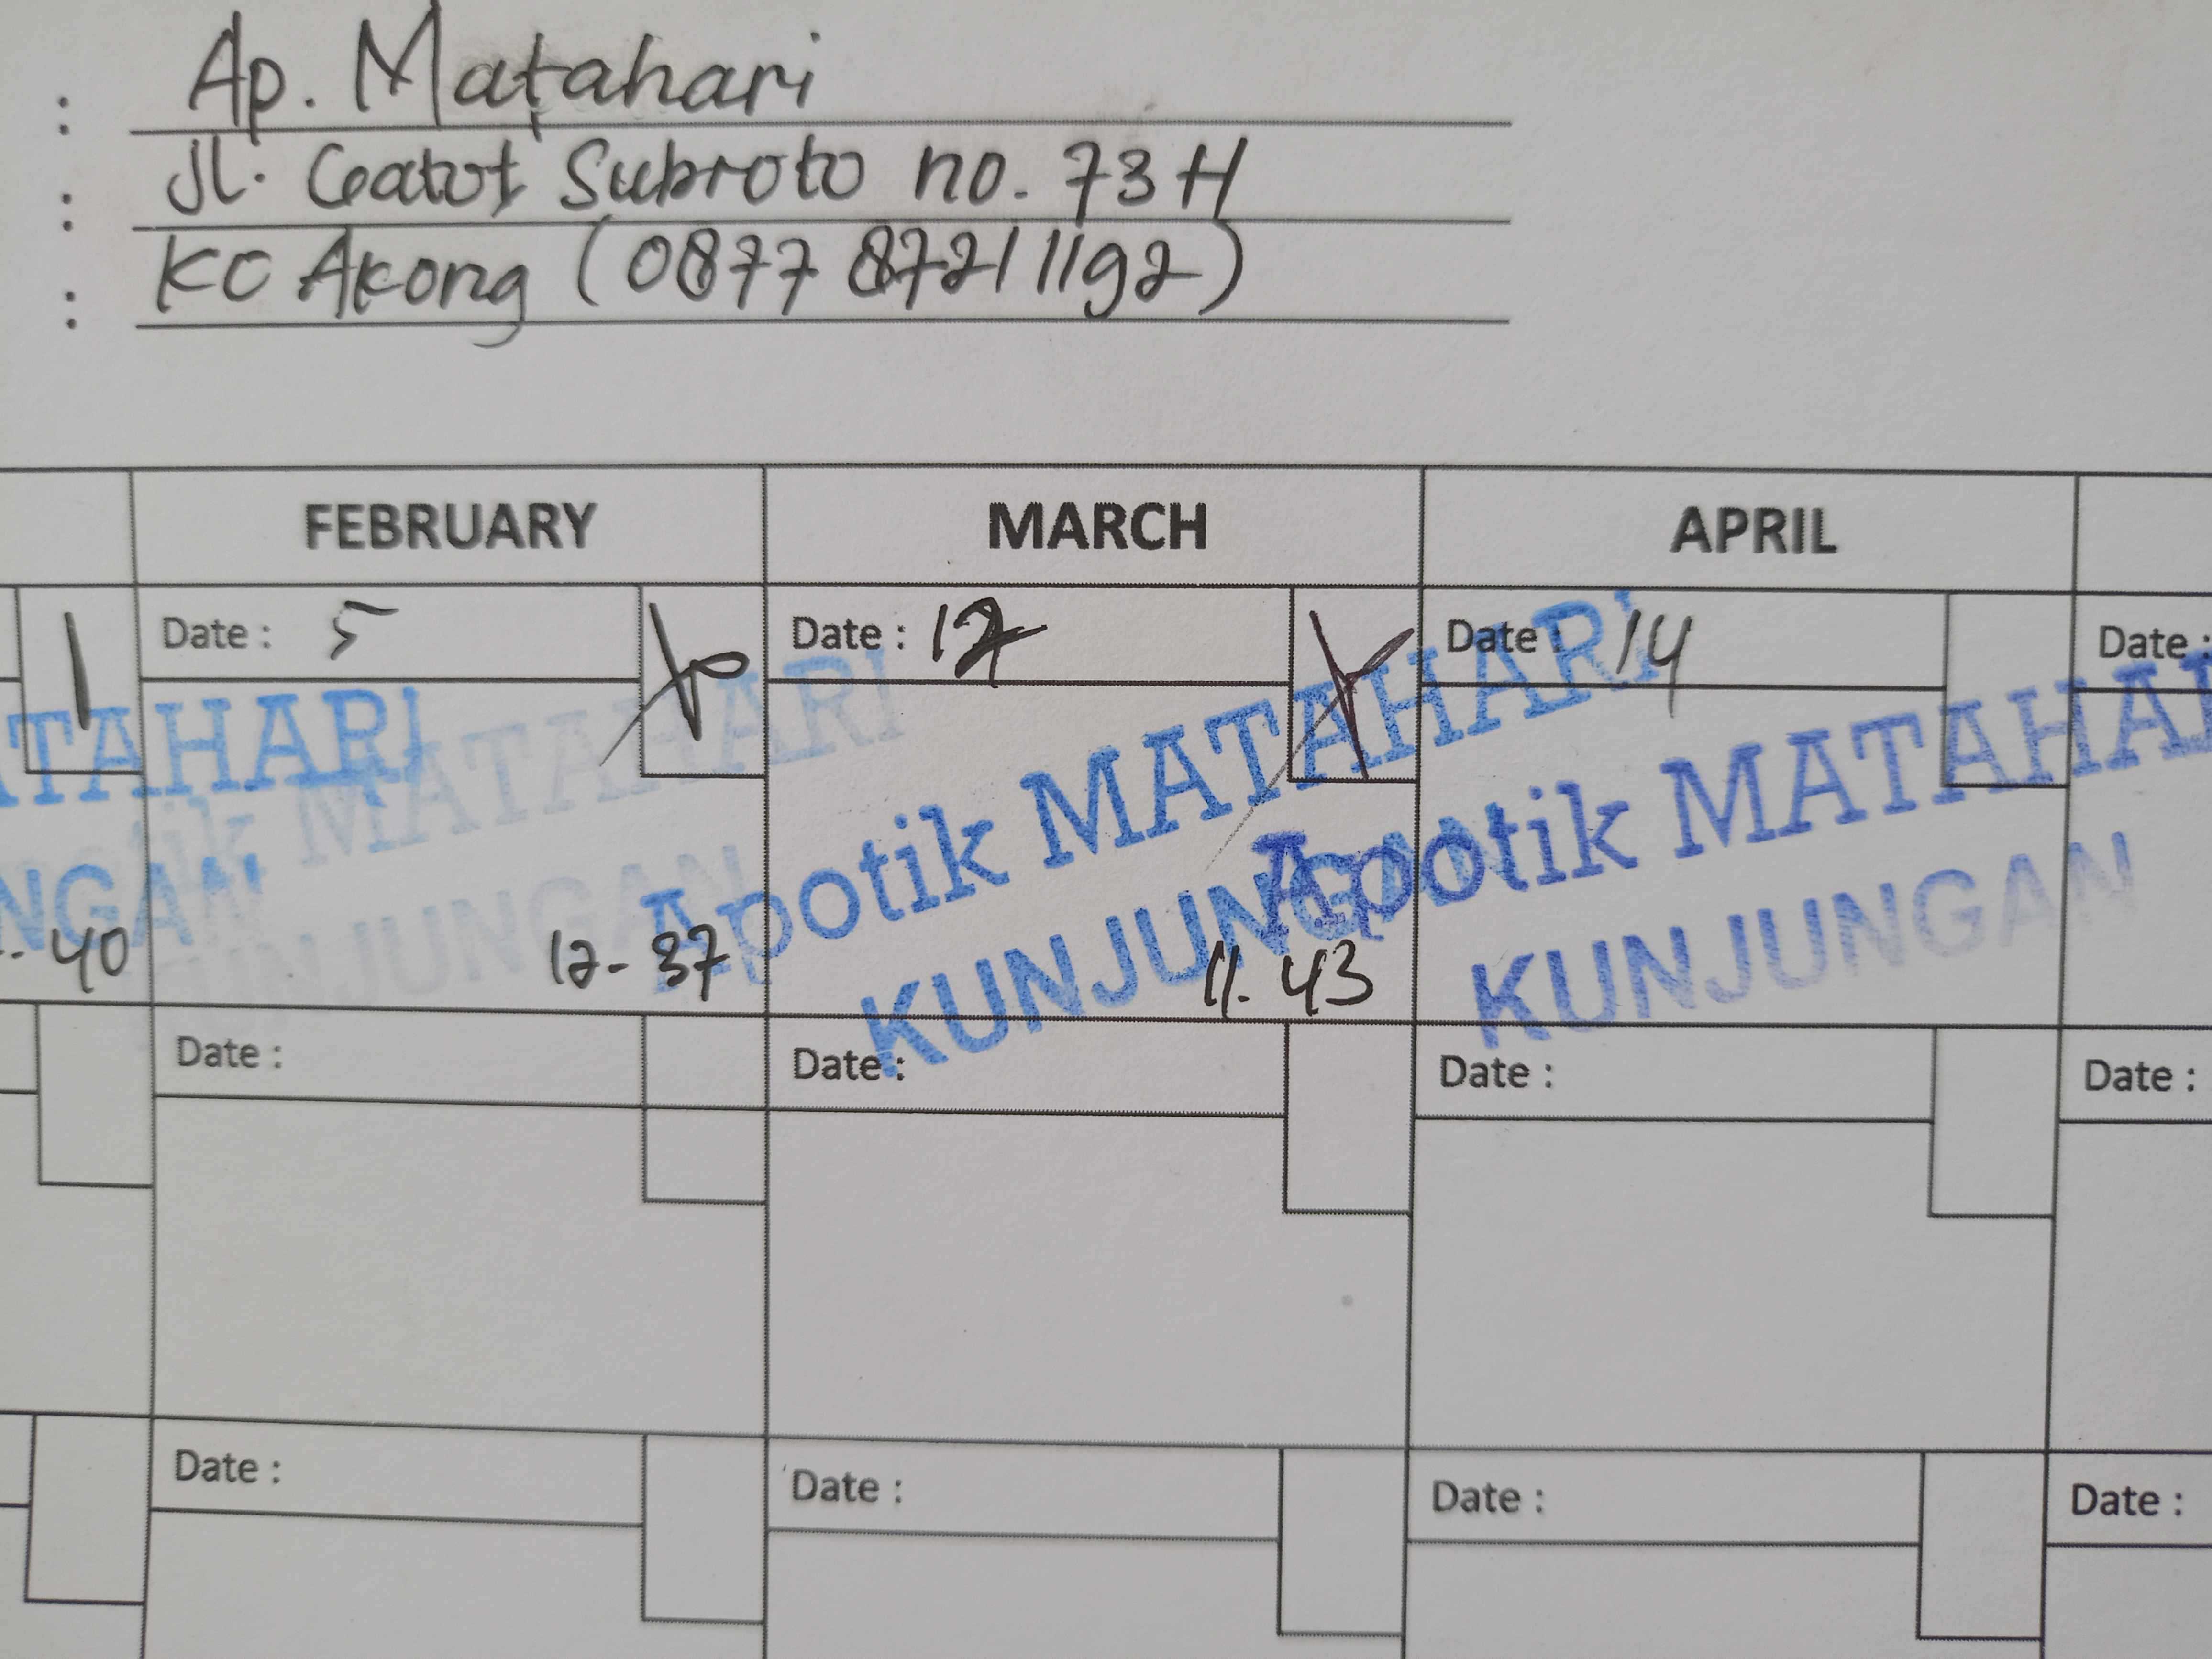 : Ap. Matahari
: Jl. Gatot Subroto no. 73H
: Ko Akong (0877 8721 1192)
FEBRUARY MARCH APRIL
Date : 5 Date : Date : 14 Date :
TAHARI MATAHARI Apotik MATAHARI Apotik MATAHA
NGAN KUNJUNGAN KUNJUNGAN KUNJUNGAN
40 12-37 11.43
Date : Date : Date : Date :
Date : Date : Date : Date :